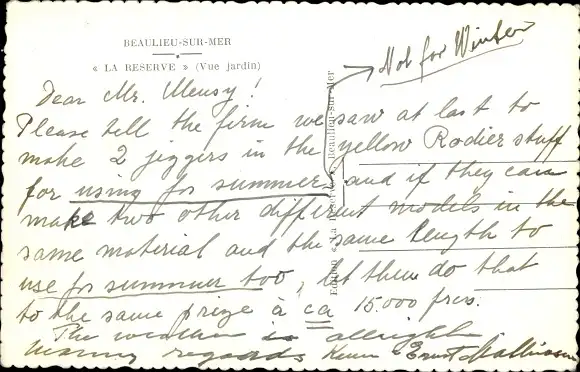 BEAULIEU-SUR-MER
« LA RESERVE » (Vue jardin)
Not for Winter
Dear Mr. Meusy!
Please tell the firm we saw at last to
make 2 jiggers in the yellow Rodier stuff
for using for summer, and if they can
make two other different models in the
same material and the same length to
use for summer too, let them do that
to the same prize à ca 15.000 frcs.
The weather is allright
Many regards Ernst
Edition « La Reserve » Beaulieu-sur-Mer